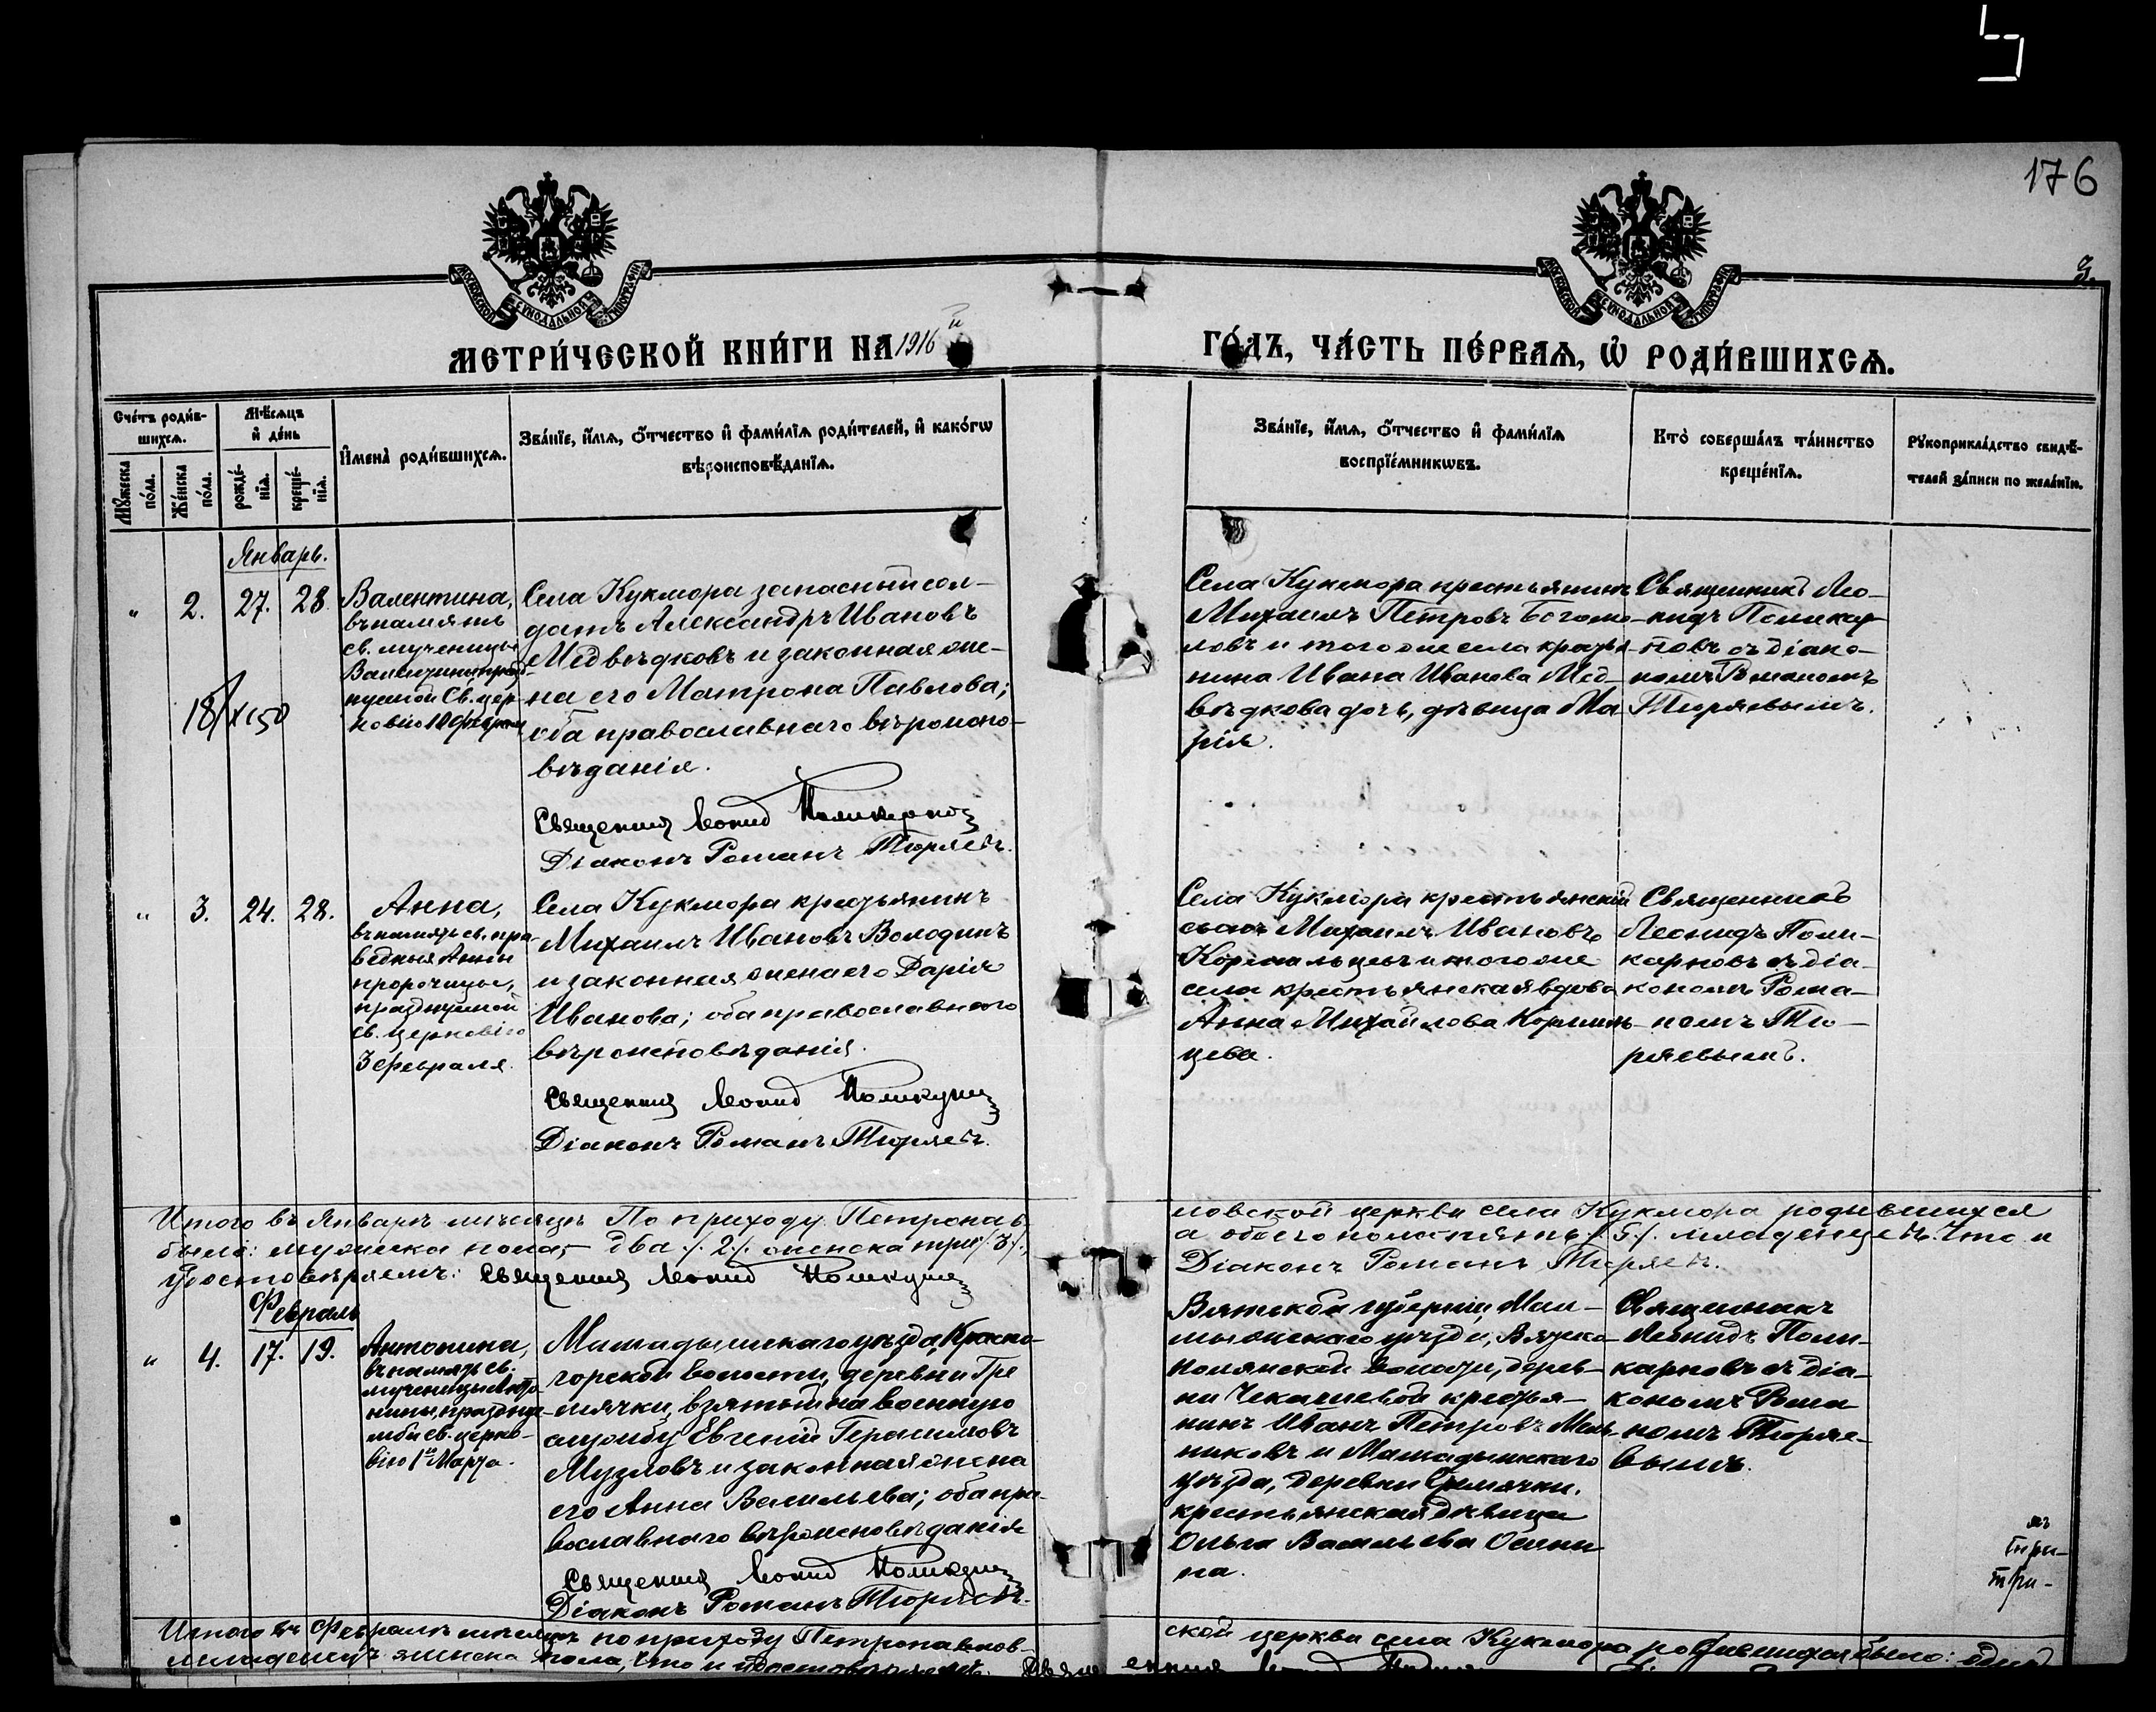 176
3.
МОСКОВСКОЙ СѴНОДАЛЬНОЙ ТИПОГРАФІИ
МОСКОВСКОЙ СѴНОДАЛЬНОЙ ТИПОГРАФІИ
МЕТРИ́ЧЕСКОЙ КНИ́ГИ НА 1916й ГО́ДЪ, ЧА́СТЬ ПЕ́РВАѦ, Ѡ҆ РОДИ́ВШИХСѦ.
Сче́тъ роди́в-
шихсѧ.
Мꙋ́жеска по́ла.
Же́нска по́ла.
Мѣ́сѧцъ
и҆ де́нь
рожде́-нїѧ.
креще́-нїѧ.
И҆мена̀ роди́вшихсѧ.
Зва́нїе, и҆́мѧ, ѻ҆́тчество и҆ фами́лїѧ роди́телей, и҆ како́гѡ
вѣроисповѣ́данїѧ.
Зва́нїе, и҆́мѧ, ѻ҆́тчество и҆ фами́лїѧ
воспрїе́мникѡвъ.
Кто̀ соверша́лъ та́инство
креще́нїѧ.
Рꙋкоприкла́дство свидѣ́-
телей за́писи по жела́нїю.
Январь.
" 2. 27. 28.
Валентина,
въ память
св. мученицы
Валентины празд-
нуемой Св. цер-
ковію 10 февраля
Села Кукмора запасный сол-
датъ Александръ Ивановъ
Медвѣдковъ и законная же-
на его Матрона Павлова;
оба православнаго вѣроиспо-
вѣданія.
Священникъ Леонидъ Поликарповъ
Діаконъ Романъ Тюряевъ.
Села Кукмора крестьянинъ
Михаилъ Петровъ Богомо-
ловъ и того же села крестья-
нина Ивана Иванова Мед-
вѣдкова дочь, дѣвица Ма
рія.
Священникъ Лео-
нидъ Поликар-
повъ съ діако-
номъ Романомъ
Тюряевымъ.
" 3. 24. 28.
Анна,
въ память св. пра
ведныя Анны
пророчицы,
празднуемой
св. церковію
3 февраля.
Села Кукмора крестьянинъ
Михаилъ Ивановъ Володинъ
и законная жена его Дарія
Иванова; оба православнаго
вѣроисповѣданія.
Священникъ Леонидъ Поликарповъ
Діаконъ Романъ Тюряевъ.
Села Кукмора крестьянскій
сынъ Михаилъ Ивановъ
и того же
села крестьянская вдова
Анна Михайлова
цева.
Священникъ
Леонидъ Поли-
карповъ съ діа-
кономъ Рома-
номъ Тю-
ряевымъ.
Итого въ Январѣ мѣсяцѣ по приходу Петропав-
ловской церкви села Кукмора родившихся
было: мужска пола, - два /. 2 /. женска три /. 3 /.,
а обоего пола пять /. 5 /. младенцевъ. Что и
удостовѣряемъ: Священникъ Леонидъ Поликарповъ
Діаконъ Романъ Тюряевъ.
Февраль
" 4. 17. 19.
Антонина,
въ память св.
мученицы Анто-
нины, празднуе-
мой св. церко-
вію 1го Марта.
Мамадышскаго уѣзда, Красно-
горской волости, деревни Гре
мячки, взятый на военную
службу Евгеній Герасимовъ
Музловъ и законная жена
его Анна Васильева; оба пра-
вославнаго вѣроисповѣданія
Священникъ Леонидъ Поликарповъ
Діаконъ Романъ Тюряевъ.
Вятской губерніи, Мал-
мыжскаго уѣзда, Вятско-
полянской волости, дерев-
ни крестья-
нинъ Иванъ Петровъ Мель-
никовъ и Мамадышскаго
уѣзда, деревни Гремячки,
крестьянская дѣвица
Ольга Васильева Осини
на.
Священникъ
Леонидъ Поли-
карповъ съ діа-
кономъ Рома
номъ Тюряе-
вымъ.
Итого въ Февралѣ мѣсяцѣ по приходу Петропавлов-
ской церкви села Кукмора родившихся было: одинъ
младенецъ женска пола, что и удостовѣряемъ: